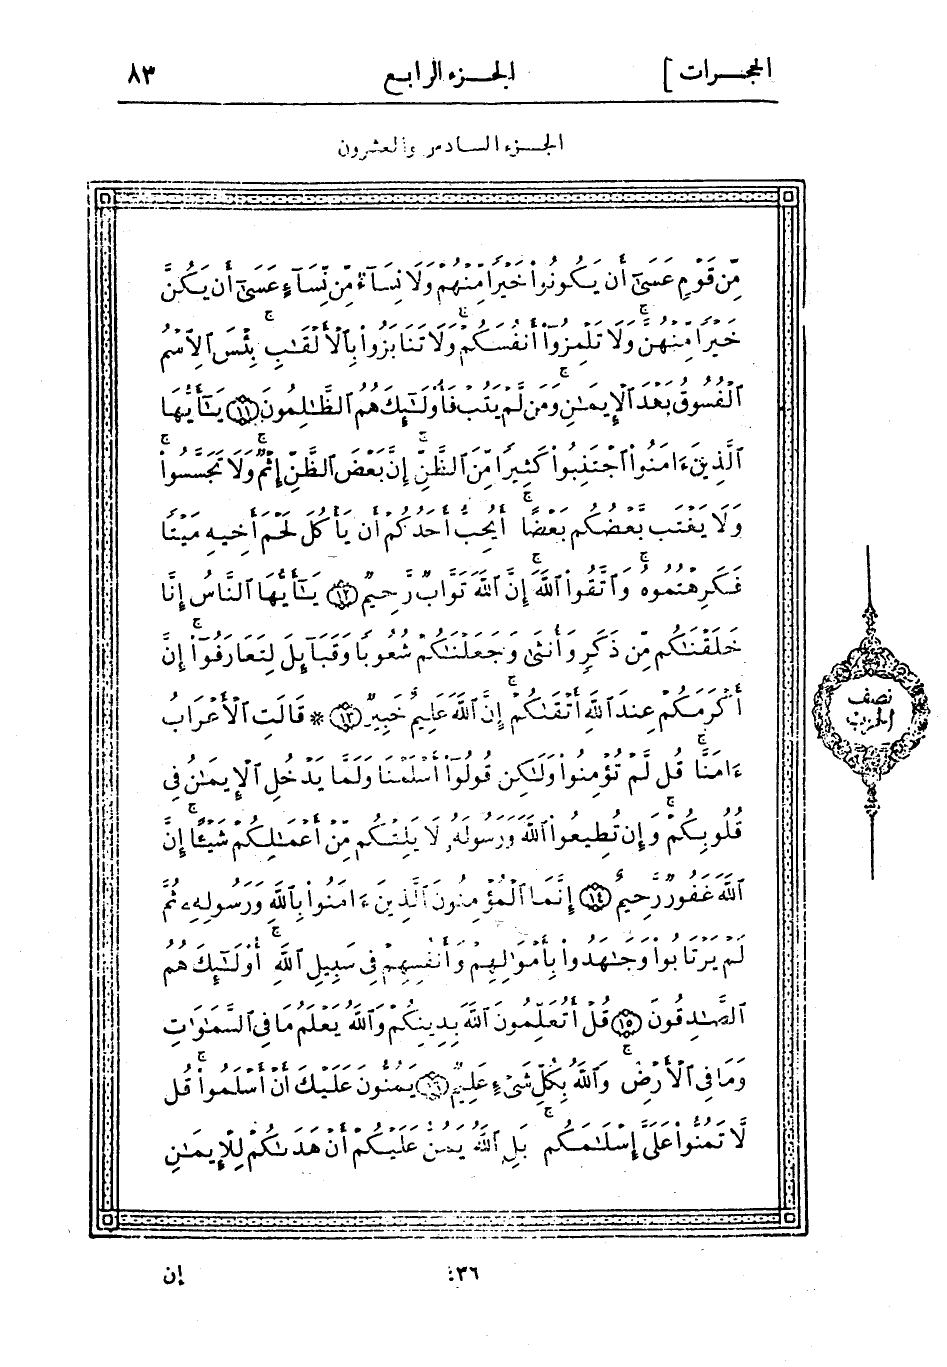 الحجرات ] الجزء الرابع ٨٣
الجزء السادس والعشرون
مِّن قَوْمٍ عَسَىٰٓ أَن يَكُونُوا۟ خَيْرًا مِّنْهُمْ وَلَا نِسَآءٌ مِّن نِّسَآءٍ عَسَىٰٓ أَن يَكُنَّ
خَيْرًا مِّنْهُنَّ ۖ وَلَا تَلْمِزُوٓا۟ أَنفُسَكُمْ وَلَا تَنَابَزُوا۟ بِٱلْأَلْقَـٰبِ ۖ بِئْسَ ٱلِٱسْمُ
ٱلْفُسُوقُ بَعْدَ ٱلْإِيمَـٰنِ ۚ وَمَن لَّمْ يَتُبْ فَأُو۟لَـٰٓئِكَ هُمُ ٱلظَّـٰلِمُونَ ۝١١ يَـٰٓأَيُّهَا
ٱلَّذِينَ ءَامَنُوا۟ ٱجْتَنِبُوا۟ كَثِيرًا مِّنَ ٱلظَّنِّ إِنَّ بَعْضَ ٱلظَّنِّ إِثْمٌ ۖ وَلَا تَجَسَّسُوا۟
وَلَا يَغْتَب بَّعْضُكُم بَعْضًا ۚ أَيُحِبُّ أَحَدُكُمْ أَن يَأْكُلَ لَحْمَ أَخِيهِ مَيْتًا
فَكَرِهْتُمُوهُ ۚ وَٱتَّقُوا۟ ٱللَّهَ ۚ إِنَّ ٱللَّهَ تَوَّابٌ رَّحِيمٌ ۝١٢ يَـٰٓأَيُّهَا ٱلنَّاسُ إِنَّا
خَلَقْنَـٰكُم مِّن ذَكَرٍ وَأُنثَىٰ وَجَعَلْنَـٰكُمْ شُعُوبًا وَقَبَآئِلَ لِتَعَارَفُوٓا۟ ۚ إِنَّ
أَكْرَمَكُمْ عِندَ ٱللَّهِ أَتْقَىٰكُمْ ۚ إِنَّ ٱللَّهَ عَلِيمٌ خَبِيرٌ ۝١٣ * قَالَتِ ٱلْأَعْرَابُ
ءَامَنَّا ۖ قُل لَّمْ تُؤْمِنُوا۟ وَلَـٰكِن قُولُوٓا۟ أَسْلَمْنَا وَلَمَّا يَدْخُلِ ٱلْإِيمَـٰنُ فِى
قُلُوبِكُمْ ۖ وَإِن تُطِيعُوا۟ ٱللَّهَ وَرَسُولَهُۥ لَا يَلِتْكُم مِّنْ أَعْمَـٰلِكُمْ شَيْـًٔا ۚ إِنَّ
ٱللَّهَ غَفُورٌ رَّحِيمٌ ۝١٤ إِنَّمَا ٱلْمُؤْمِنُونَ ٱلَّذِينَ ءَامَنُوا۟ بِٱللَّهِ وَرَسُولِهِۦ ثُمَّ
لَمْ يَرْتَابُوا۟ وَجَـٰهَدُوا۟ بِأَمْوَٰلِهِمْ وَأَنفُسِهِمْ فِى سَبِيلِ ٱللَّهِ ۚ أُو۟لَـٰٓئِكَ هُمُ
ٱلصَّـٰدِقُونَ ۝١٥ قُلْ أَتُعَلِّمُونَ ٱللَّهَ بِدِينِكُمْ وَٱللَّهُ يَعْلَمُ مَا فِى ٱلسَّمَـٰوَٰتِ
وَمَا فِى ٱلْأَرْضِ ۚ وَٱللَّهُ بِكُلِّ شَىْءٍ عَلِيمٌ ۝١٦ يَمُنُّونَ عَلَيْكَ أَنْ أَسْلَمُوا۟ ۖ قُل
لَّا تَمُنُّوا۟ عَلَىَّ إِسْلَـٰمَكُم ۖ بَلِ ٱللَّهُ يَمُنُّ عَلَيْكُمْ أَنْ هَدَىٰكُمْ لِلْإِيمَـٰنِ
نصف
الحزب
إن ٤٣٦